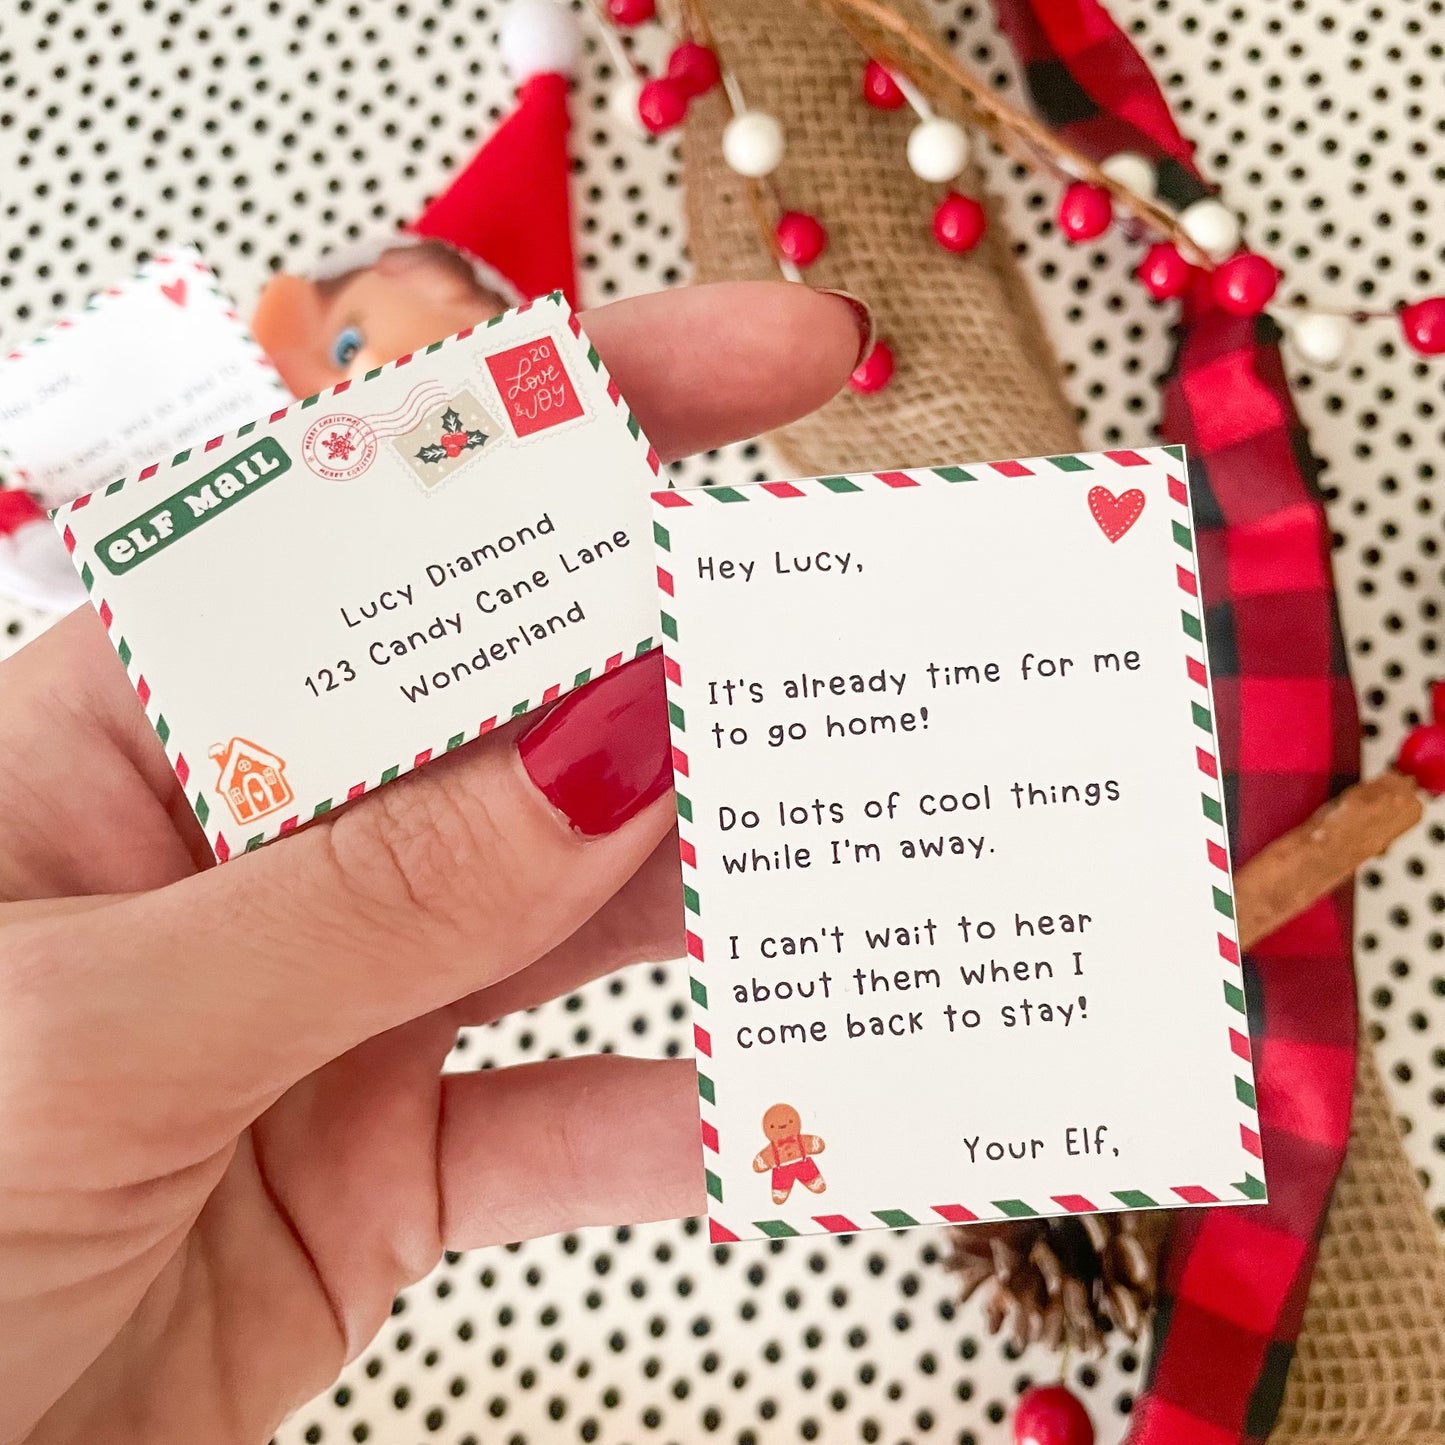 ELF MAIL
MERRY CHRISTMAS
MERRY CHRISTMAS
20
Love
& JOY
Lucy Diamond
123 Candy Cane Lane
Wonderland
Hey Lucy,
It's already time for me
to go home!
Do lots of cool things
while I'm away.
I can't wait to hear
about them when I
come back to stay!
Your Elf,